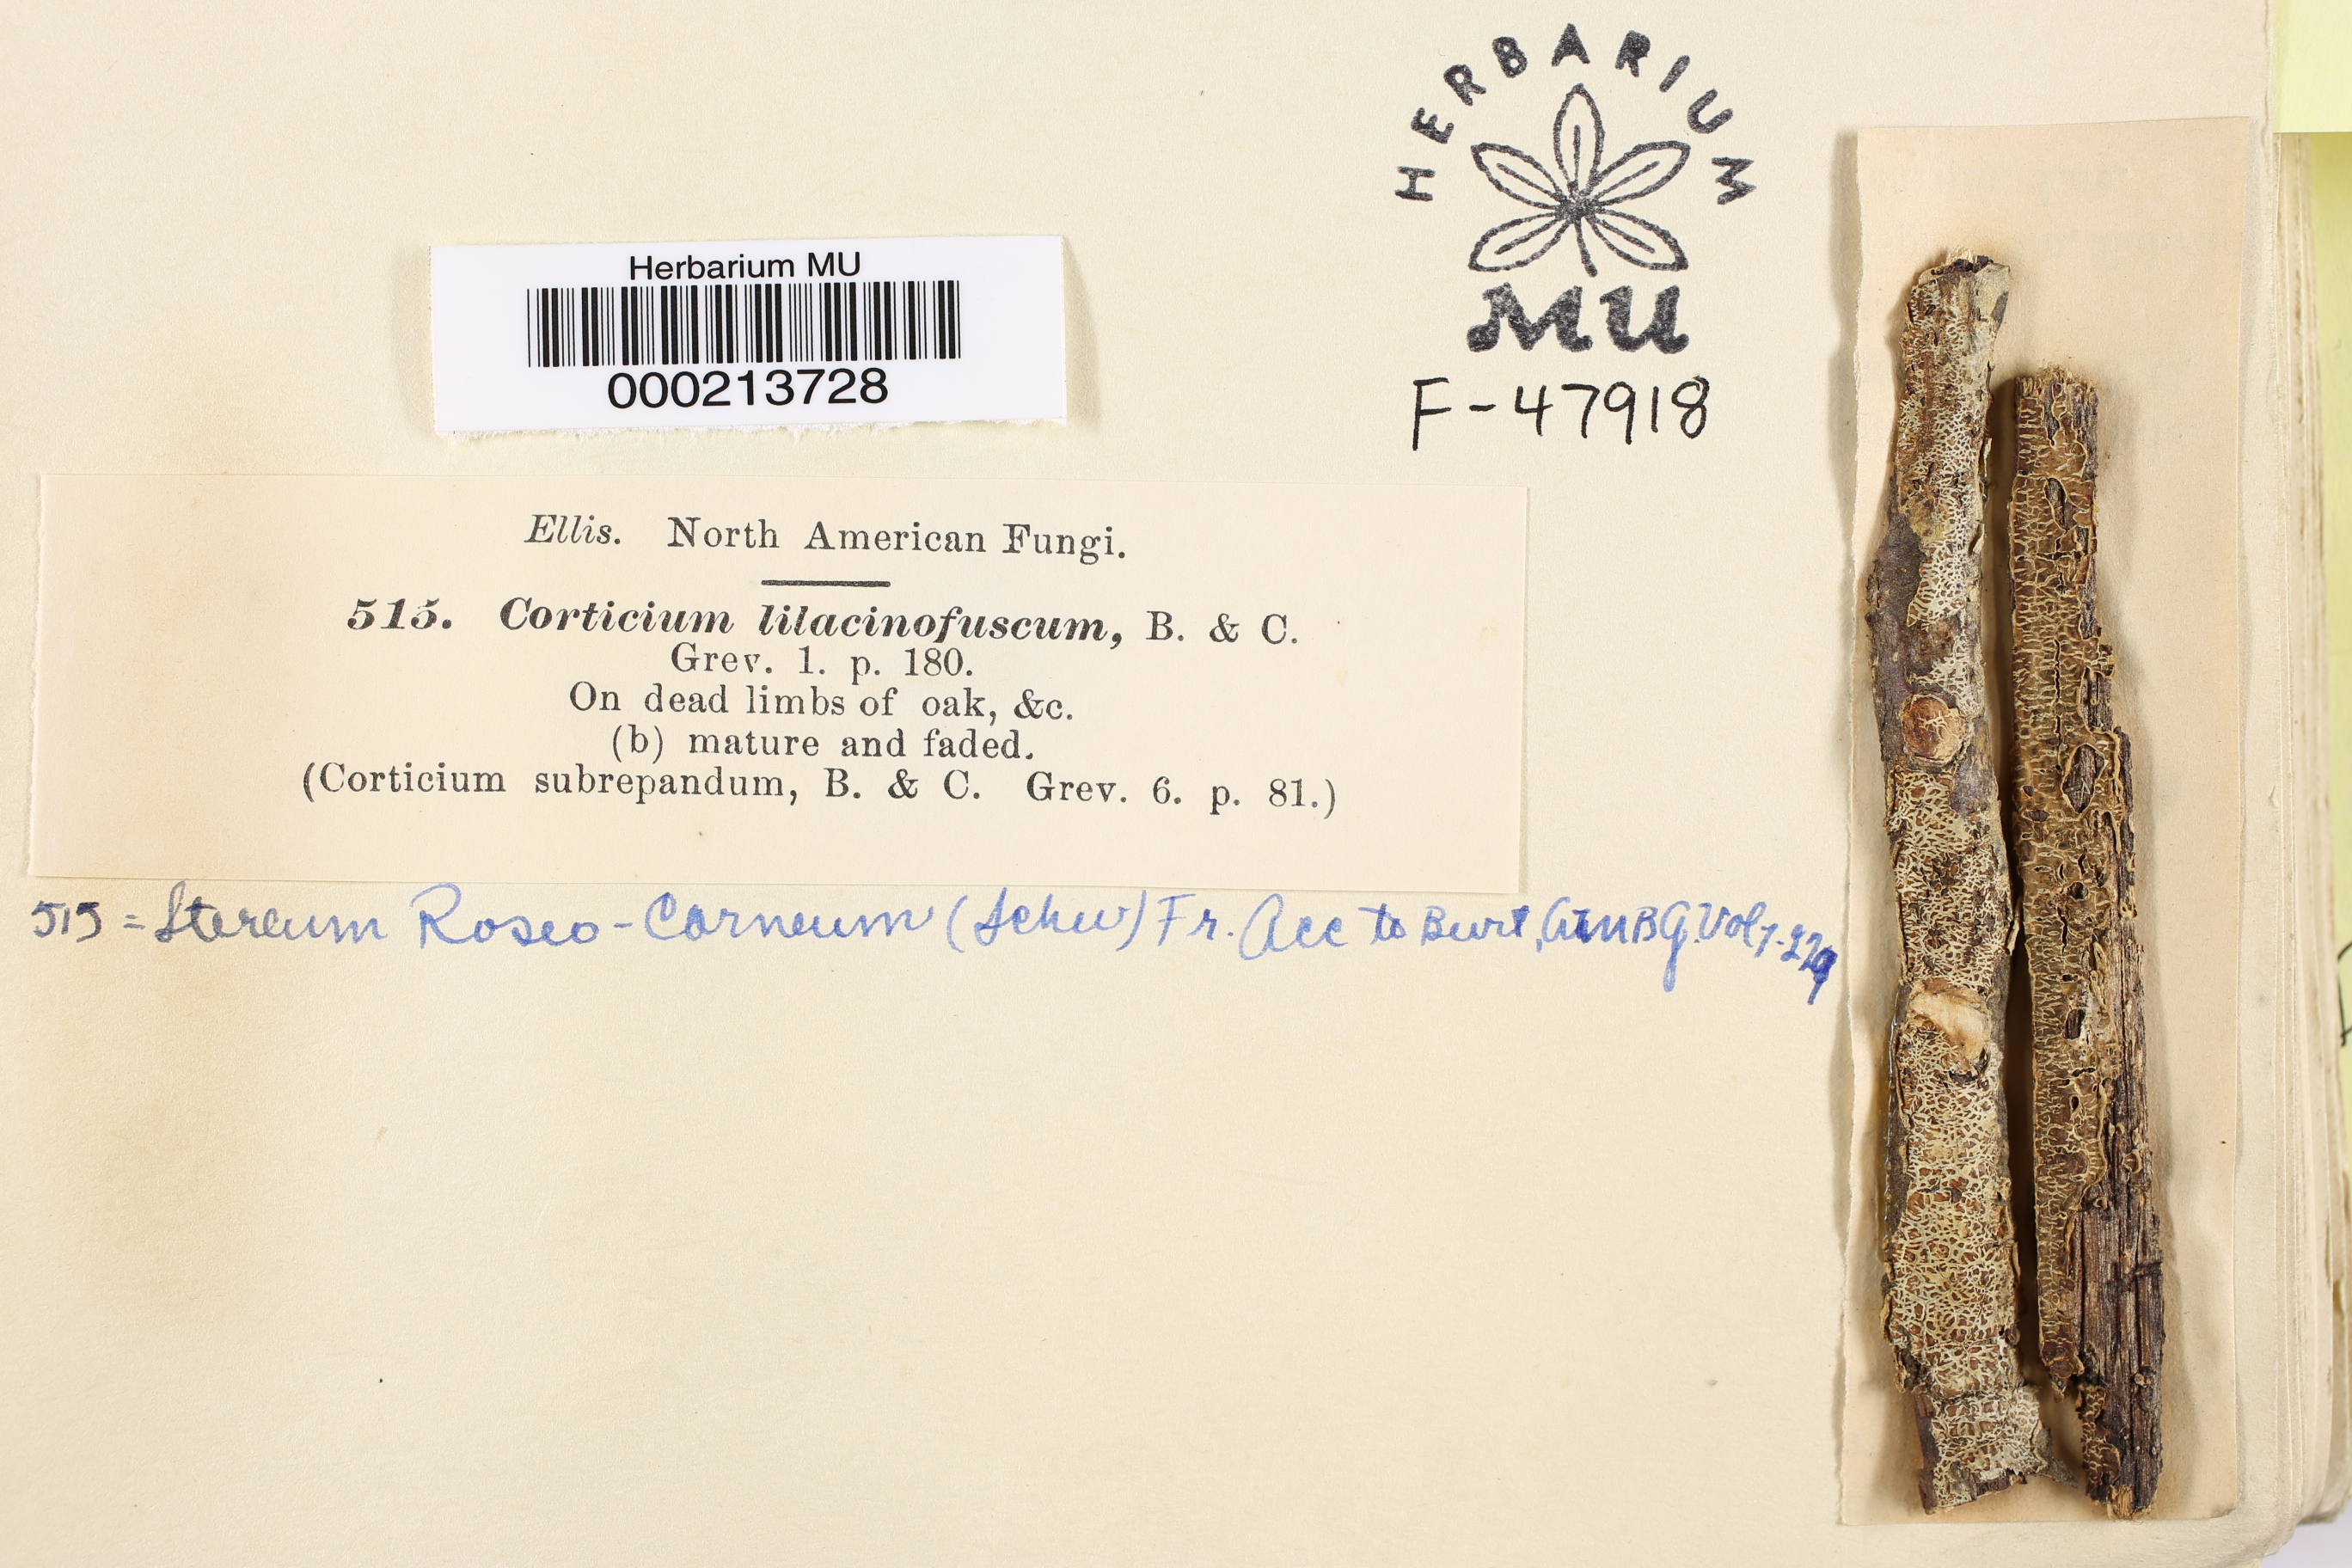 HERBARIUM
MU
F-47918
Herbarium MU
000213728
Ellis. North American Fungi.
515. Corticium lilacinofuscum, B. & C.
Grev. 1. p. 180.
On dead limbs of oak, &c.
(b) mature and faded.
(Corticium subrepandum, B. & C. Grev. 6. p. 81.)
515 = Stereum Roseo-Carneum (Schw) Fr. Acc to Burt, Vol 7-